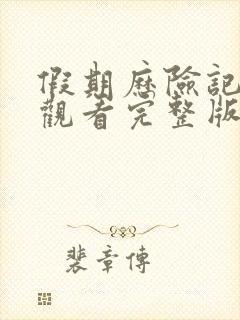 假期歷險記
觀看完整版
裴章傳